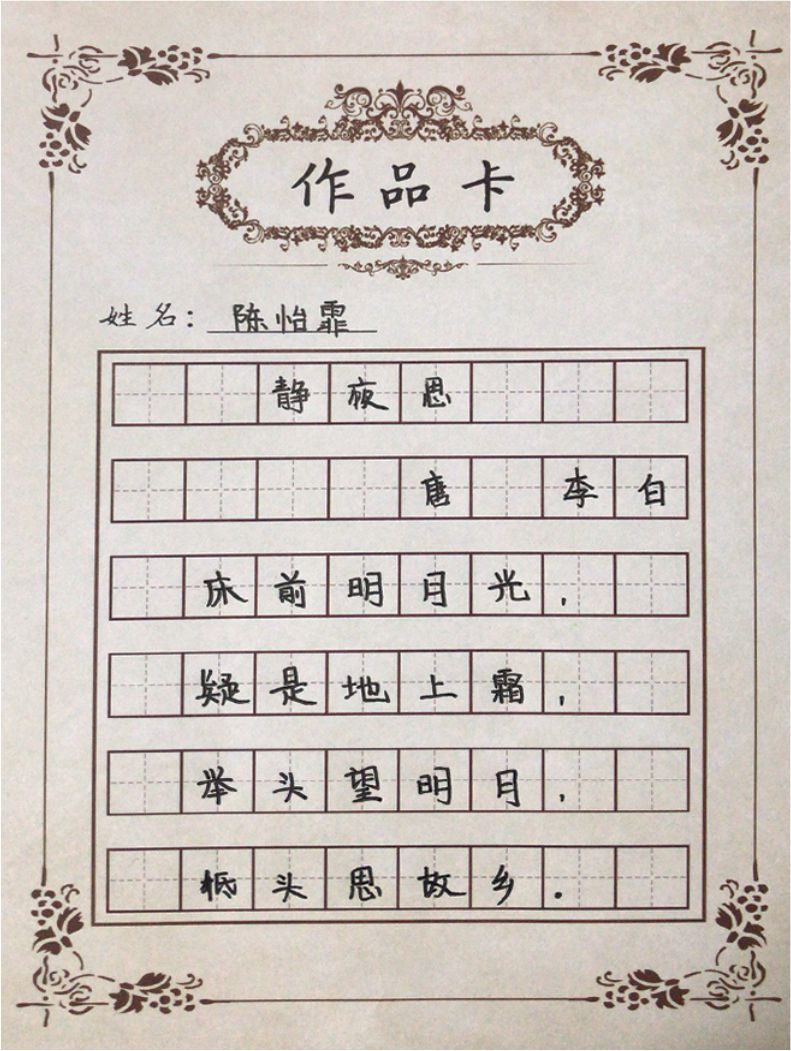 作品卡
姓名：陈怡霏
静夜思
唐 李白
床前明月光，
疑是地上霜，
举头望明月，
低头思故乡.